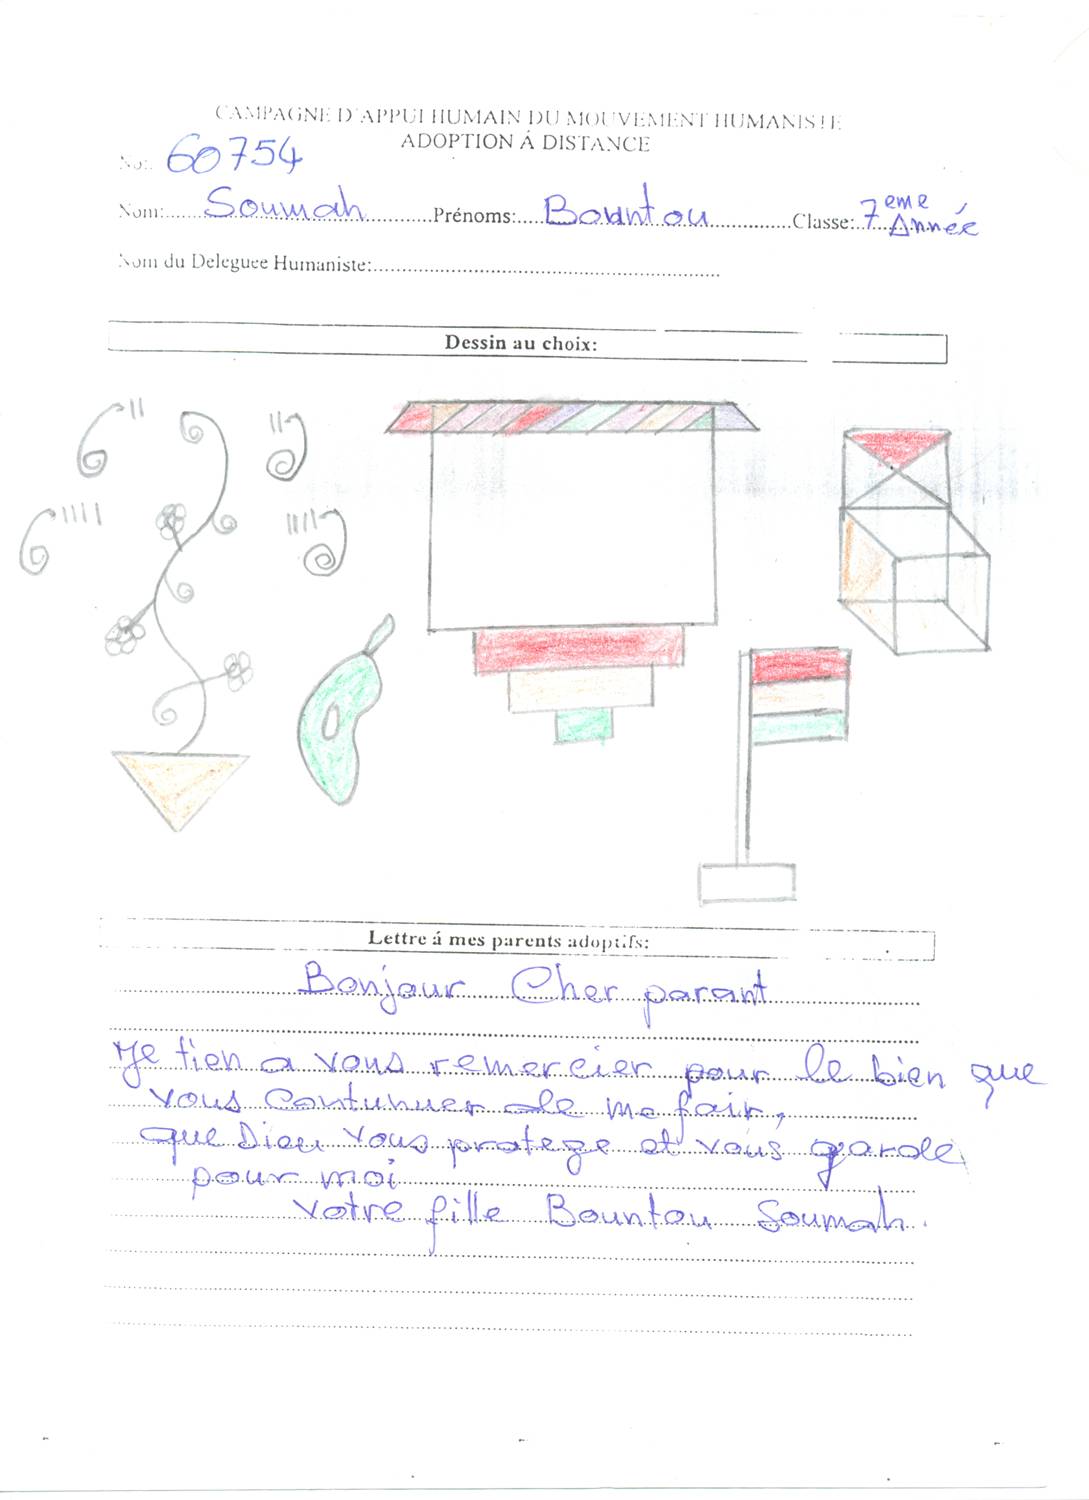 CAMPAGNE D'APPUI HUMAIN DU MOUVEMENT HUMANISTE
ADOPTION Á DISTANCE
No: 60754
Nom: Soumah Prénoms: Bountou Classe: 7eme Année
Nom du Deleguee Humaniste:
Dessin au choix:
Lettre á mes parents adoptifs:
Bonjour Cher parant
Je tien a vous remercier pour le bien que
vous contunuer de me fair,
que Dieu vous protege et vous garde
pour moi
votre fille Bountou Soumah.